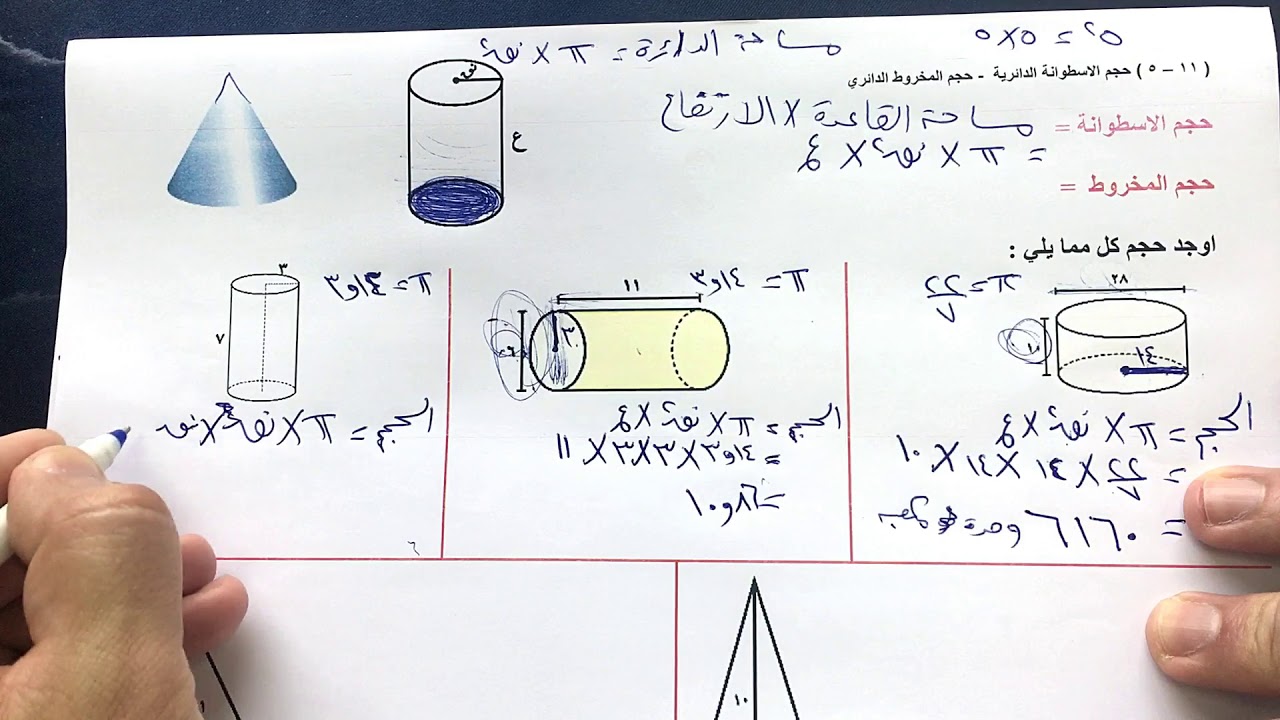 ٥² = ٥×٥
مساحة الدائرة = π × نق²
نق
( ١١ – ٥ ) حجم الاسطوانة الدائرية - حجم المخروط الدائري
حجم الاسطوانة = مساحة القاعدة × الارتفاع
= π × نق² × ع
ع
حجم المخروط =
اوجد حجم كل مما يلي :
٢٨
π = ٢٢/٧
١٠
١٤
الحجم = π × نق² × ع
= ٢٢/٧ × ١٤ × ١٤ × ١٠
= ٦١٦٠ وحدة مكعبة
١١
π = ٣و١٤
٦
٣
الحجم = π × نق² × ع
= ٣و١٤ × ٣ × ٣ × ١١
٣
π = ٣و١٤
٧
الحجم = π × نق² × نق
١٠